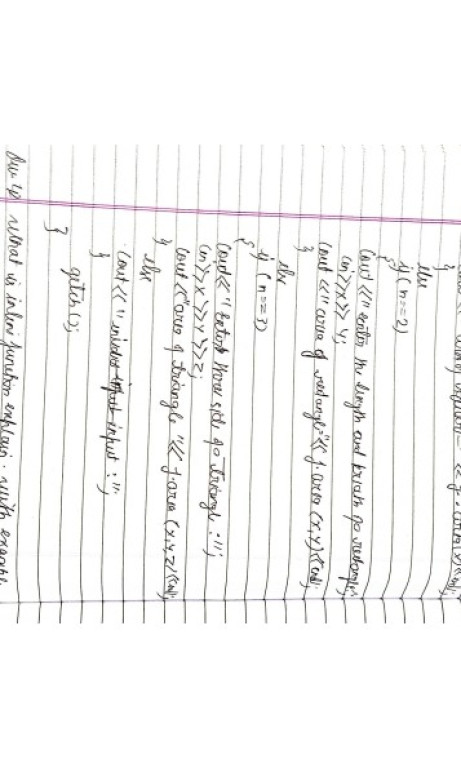 cout << "area of square=" << j.area(x)<<endl;
}
else
if (n==2)
{
Cout <<" enter the length and breath go rectangle;
cin>>x>> y;
Cout <<" area of rectangle="<< j.area (x,y)<<endl;
}
else
if (n==3)
{
Cout<< " Enter three side go triangle :";
cin>>x >>y >>z;
Cout <<"area of triangle "<< j.area (x,y,z)<<endl;
}
else
Cout << " input :";
}
getch();
}
What is inline function explain. with example.